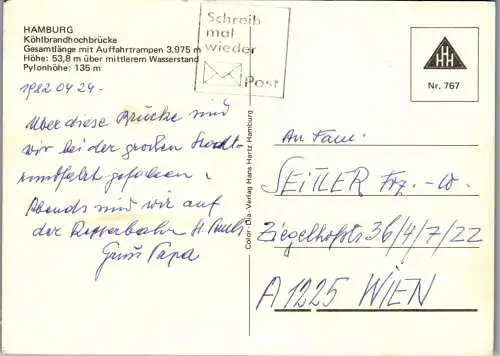 HAMBURG
Köhlbrandhochbrücke
Gesamtlänge mit Auffahrtrampen 3.975 m
Höhe: 53,8 m über mittlerem Wasserstand
Pylonhöhe: 135 m
Schreib
mal
wieder
Post
HHH
Nr. 767
1982 04 24.
Über diese Brücke sind
wir bei der großen Stadt-
rundfahrt gefahren.
Abends sind wir auf
der Reeperbahn St. Pauli
Gruss Papa
Color-Dia-Verlag Hans Hartz Hamburg
An Fam.
SEITLER Frz. -
Ziegelhofstr 36/4/7/22
A 1225 WIEN